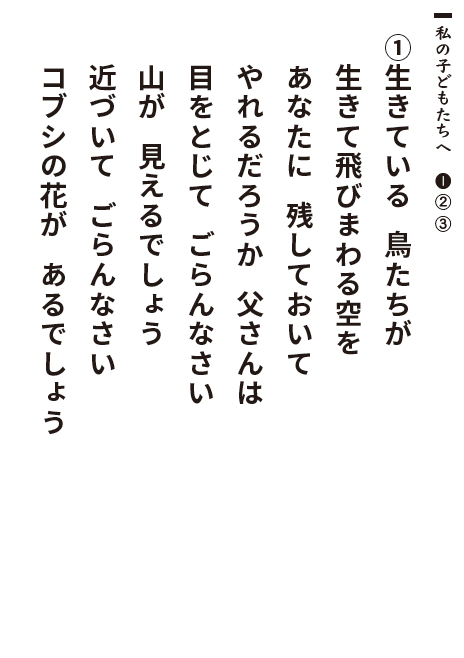 私の子どもたちへ ❶②③
①生きている 鳥たちが
生きて飛びまわる空を
あなたに 残しておいて
やれるだろうか 父さんは
目をとじて ごらんなさい
山が 見えるでしょう
近づいて ごらんなさい
コブシの花が あるでしょう